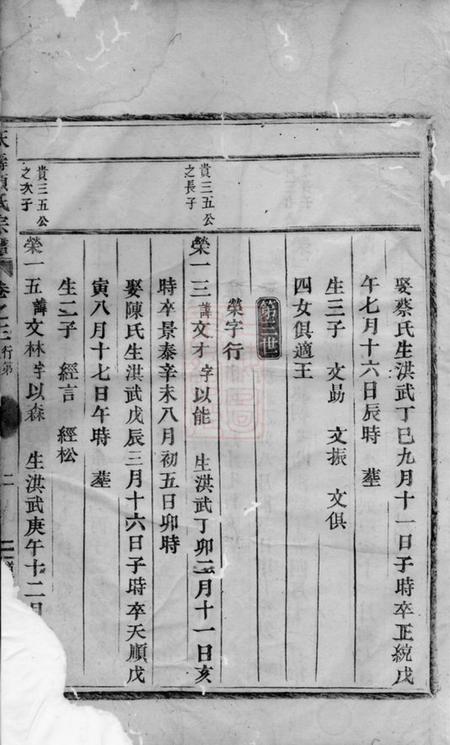 娶蔡氏生洪武丁巳九月十一日子時卒正統戊
午七月十六日辰時 塟
生三子 文勗 文振 文俱
四女俱適王
第三世
榮字行
貴三五公
之長子
榮一三諱文才字以能 生洪武丁卯二月十一日亥
時卒景泰辛未八月初五日卯時
娶陳氏生洪武戊辰三月十六日子時卒天順戊
寅八月十七日午時 塟
生二子 經言 經松
貴三五公
之次子
榮一五諱文林字以森 生洪武庚午十二月
氏宗譜 卷之 行第 二